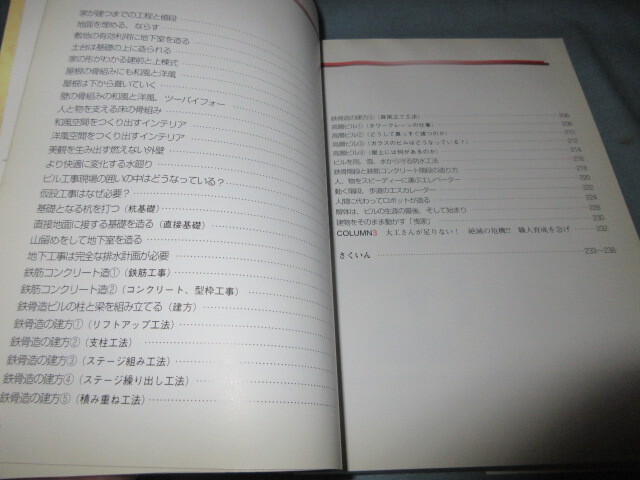 家が建つまでの工程と値段
地面を埋める、ならす
敷地の有効利用に地下室を造る
土台は基礎の上に造られる
家の形がわかる建前と上棟式
屋根の骨組みにも和風と洋風
屋根は下から葺いていく
壁の骨組みの和風と洋風、ツーバイフォー
人と物を支える床の骨組み
和風空間をつくり出すインテリア
洋風空間をつくり出すインテリア
美観を生み出す燃えない外壁
より快適に変化する水廻り
ビル工事現場の囲いの中はどうなっている?
仮設工事はなぜ必要?
基礎となる杭を打つ(杭基礎)
直接地面に接する基礎を造る(直接基礎)
山留めをして地下室を造る
地下工事は完全な排水計画が必要
鉄筋コンクリート造①(鉄筋工事)
鉄筋コンクリート造②(コンクリート、型枠工事)
鉄骨造ビルの柱と梁を組み立てる(建方)
鉄骨造の建方①(リフトアップ工法)
鉄骨造の建方②(支柱工法)
鉄骨造の建方③(ステージ組み工法)
鉄骨造の建方④(ステージ繰り出し工法)
鉄骨造の建方⑤(積み重ね工法)
鉄骨造の建方⑥(屏風立て工法) 206
高層ビル①(タワークレーンの仕事) 208
高層ビル②(どうして真っすぐ建つのか) 210
高層ビル③(ガラスのビルはどうなっている?) 212
高層ビル④(屋上には何があるのか) 214
ビルを雨、雪、水から守る防水工法 216
鉄骨階段と鉄筋コンクリート階段の造り方 218
人、物をスピーディーに運ぶエレベーター 220
動く階段、歩道のエスカレーター 222
人間に代わってロボットが造る 224
解体は、ビルの生涯の最後、そして始まり 228
建物をそのまま動かす「曳家」 230
COLUMN3 大工さんが足りない! 絶滅の危機!! 職人育成を急げ 232
さくいん 233~238